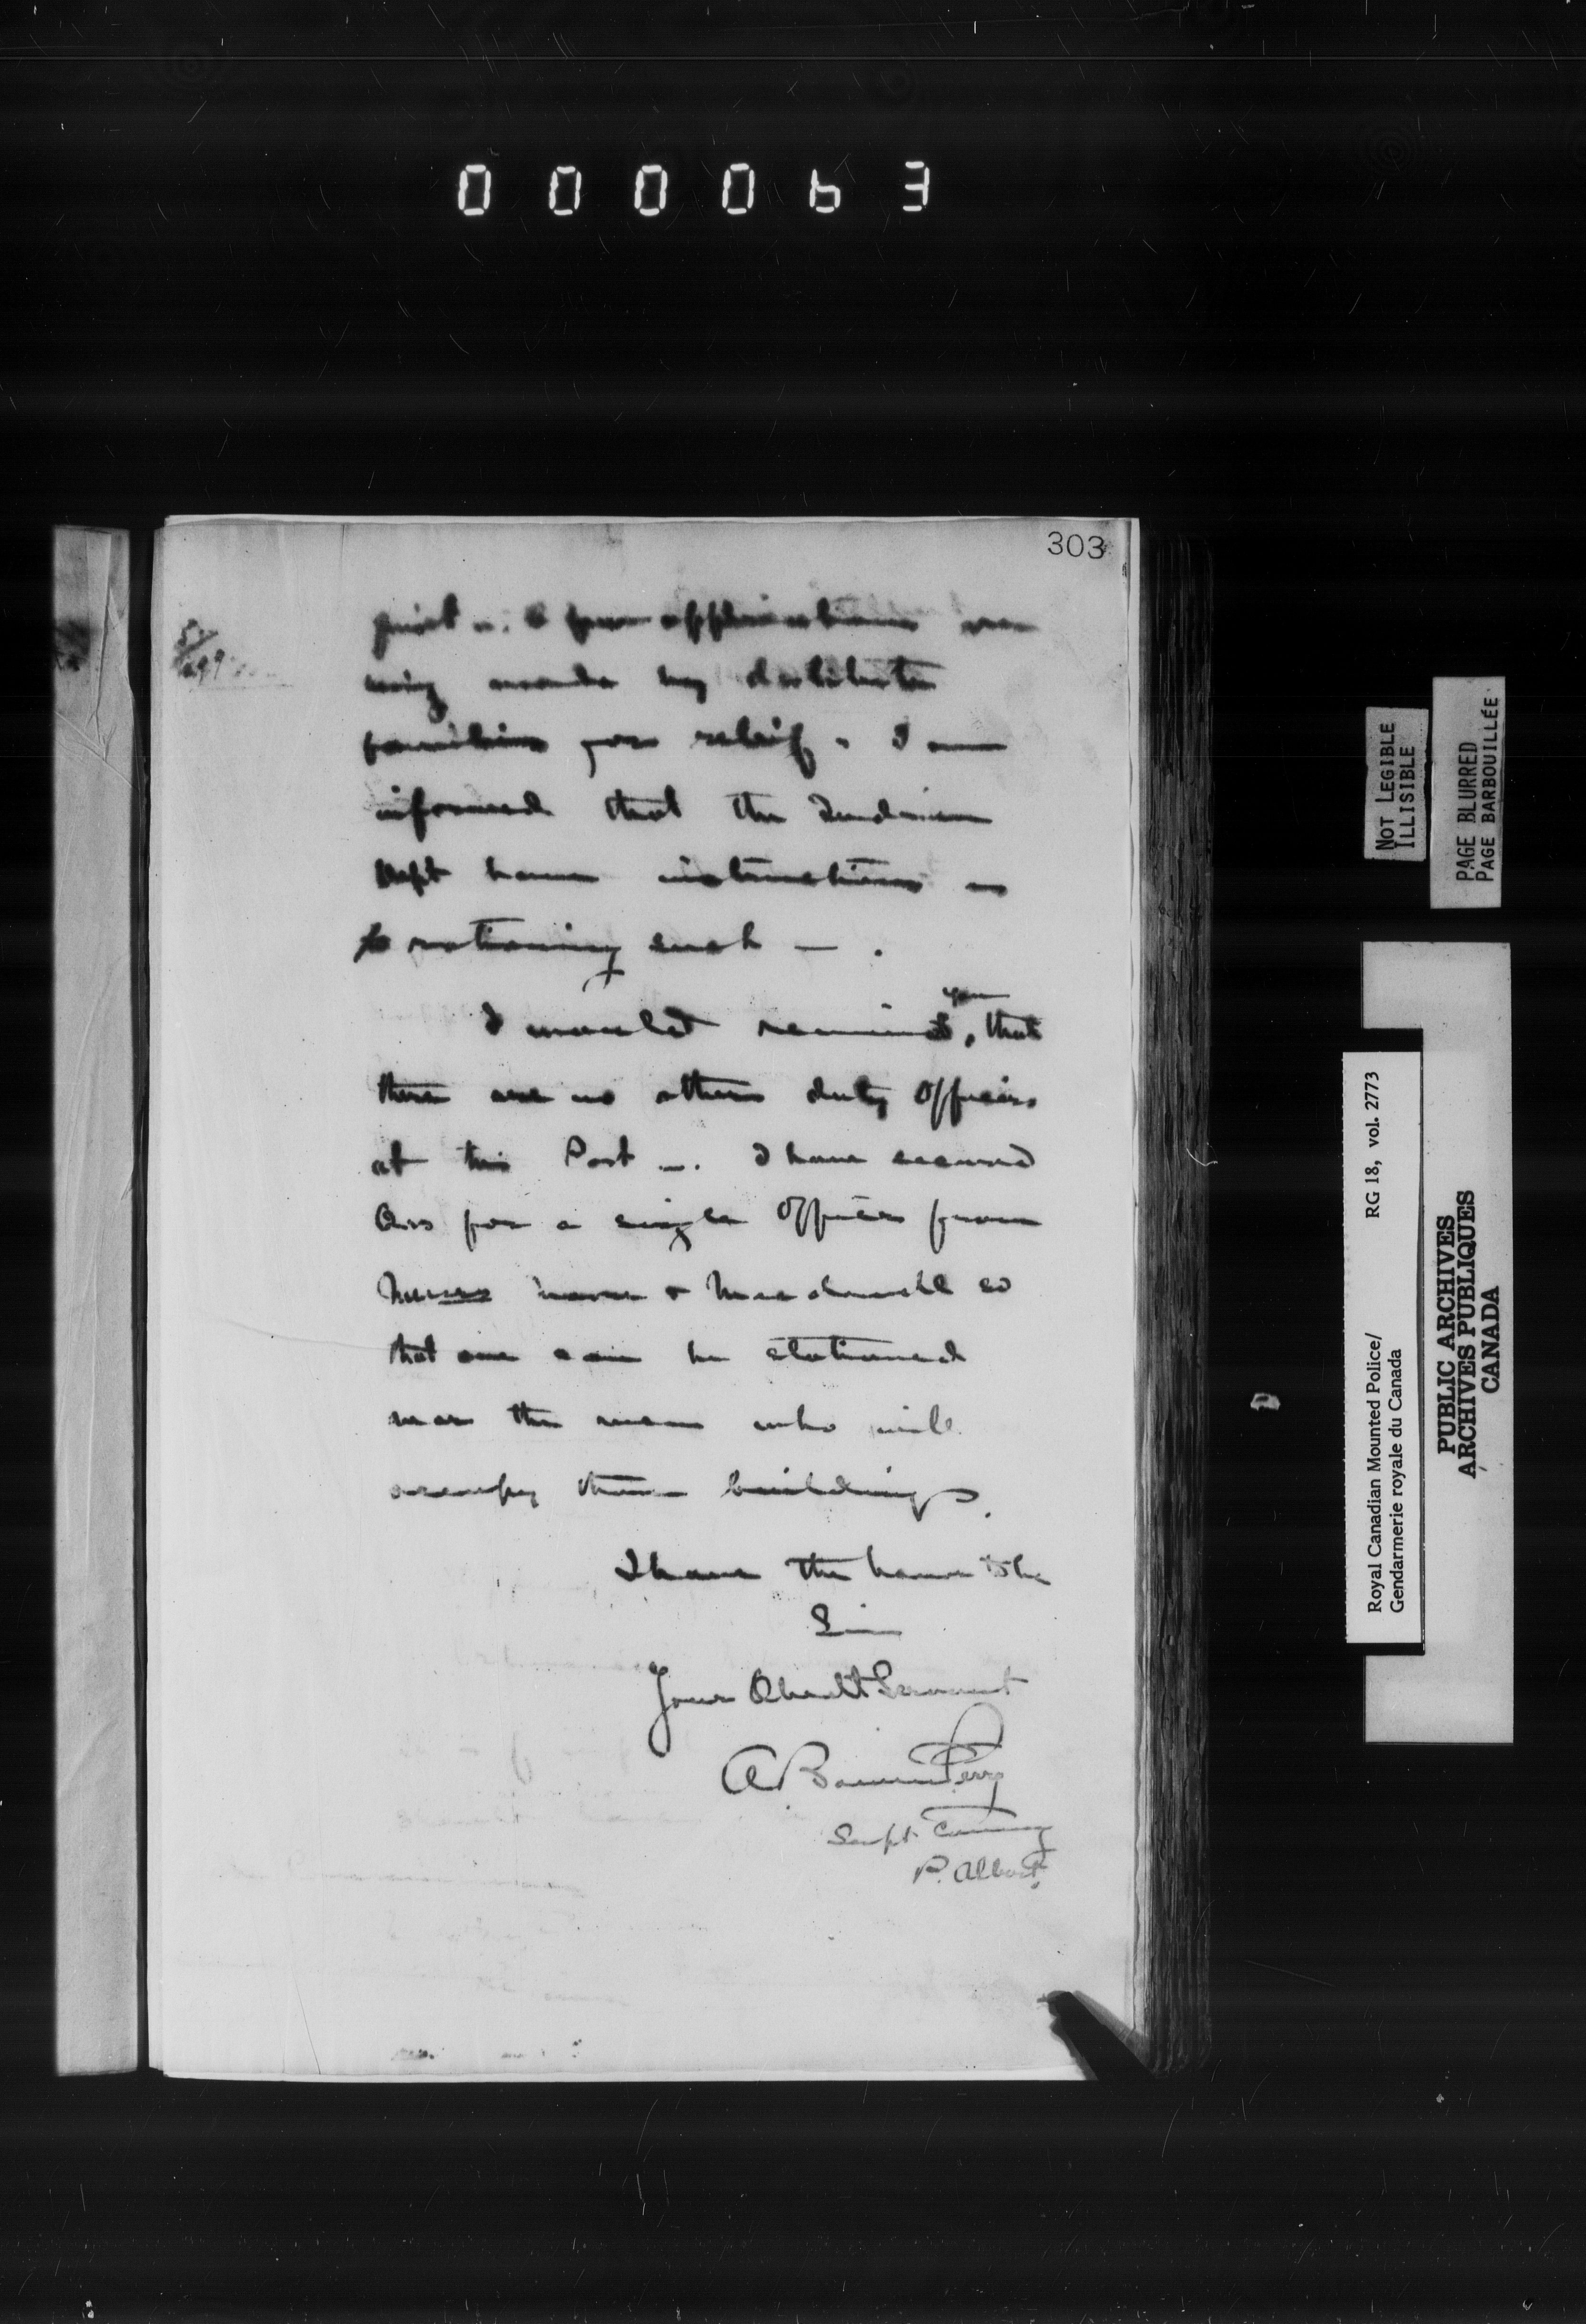 000063
303
quiet. A few applications were
being made by destitute
families for relief. I am
informed that the Indian
Dept have instructions as
to rationing such —.
I would remind you, that
there are no other duty Officers
at this Post —. I have secured
Qrs for a single Officer from
Messrs & Macdowall so
that one can be stationed
near the men who will
occupy these buildings.
I have the honor to be
Sir
Your Obedt Servant
A Bowen Perry
Supt Commg
P. Albert.
NOT LEGIBLE
ILLISIBLE
PAGE BLURRED
PAGE BARBOUILLÉE
Royal Canadian Mounted Police/ RG 18, vol. 2773
Gendarmerie royale du Canada
PUBLIC ARCHIVES
ARCHIVES PUBLIQUES
CANADA